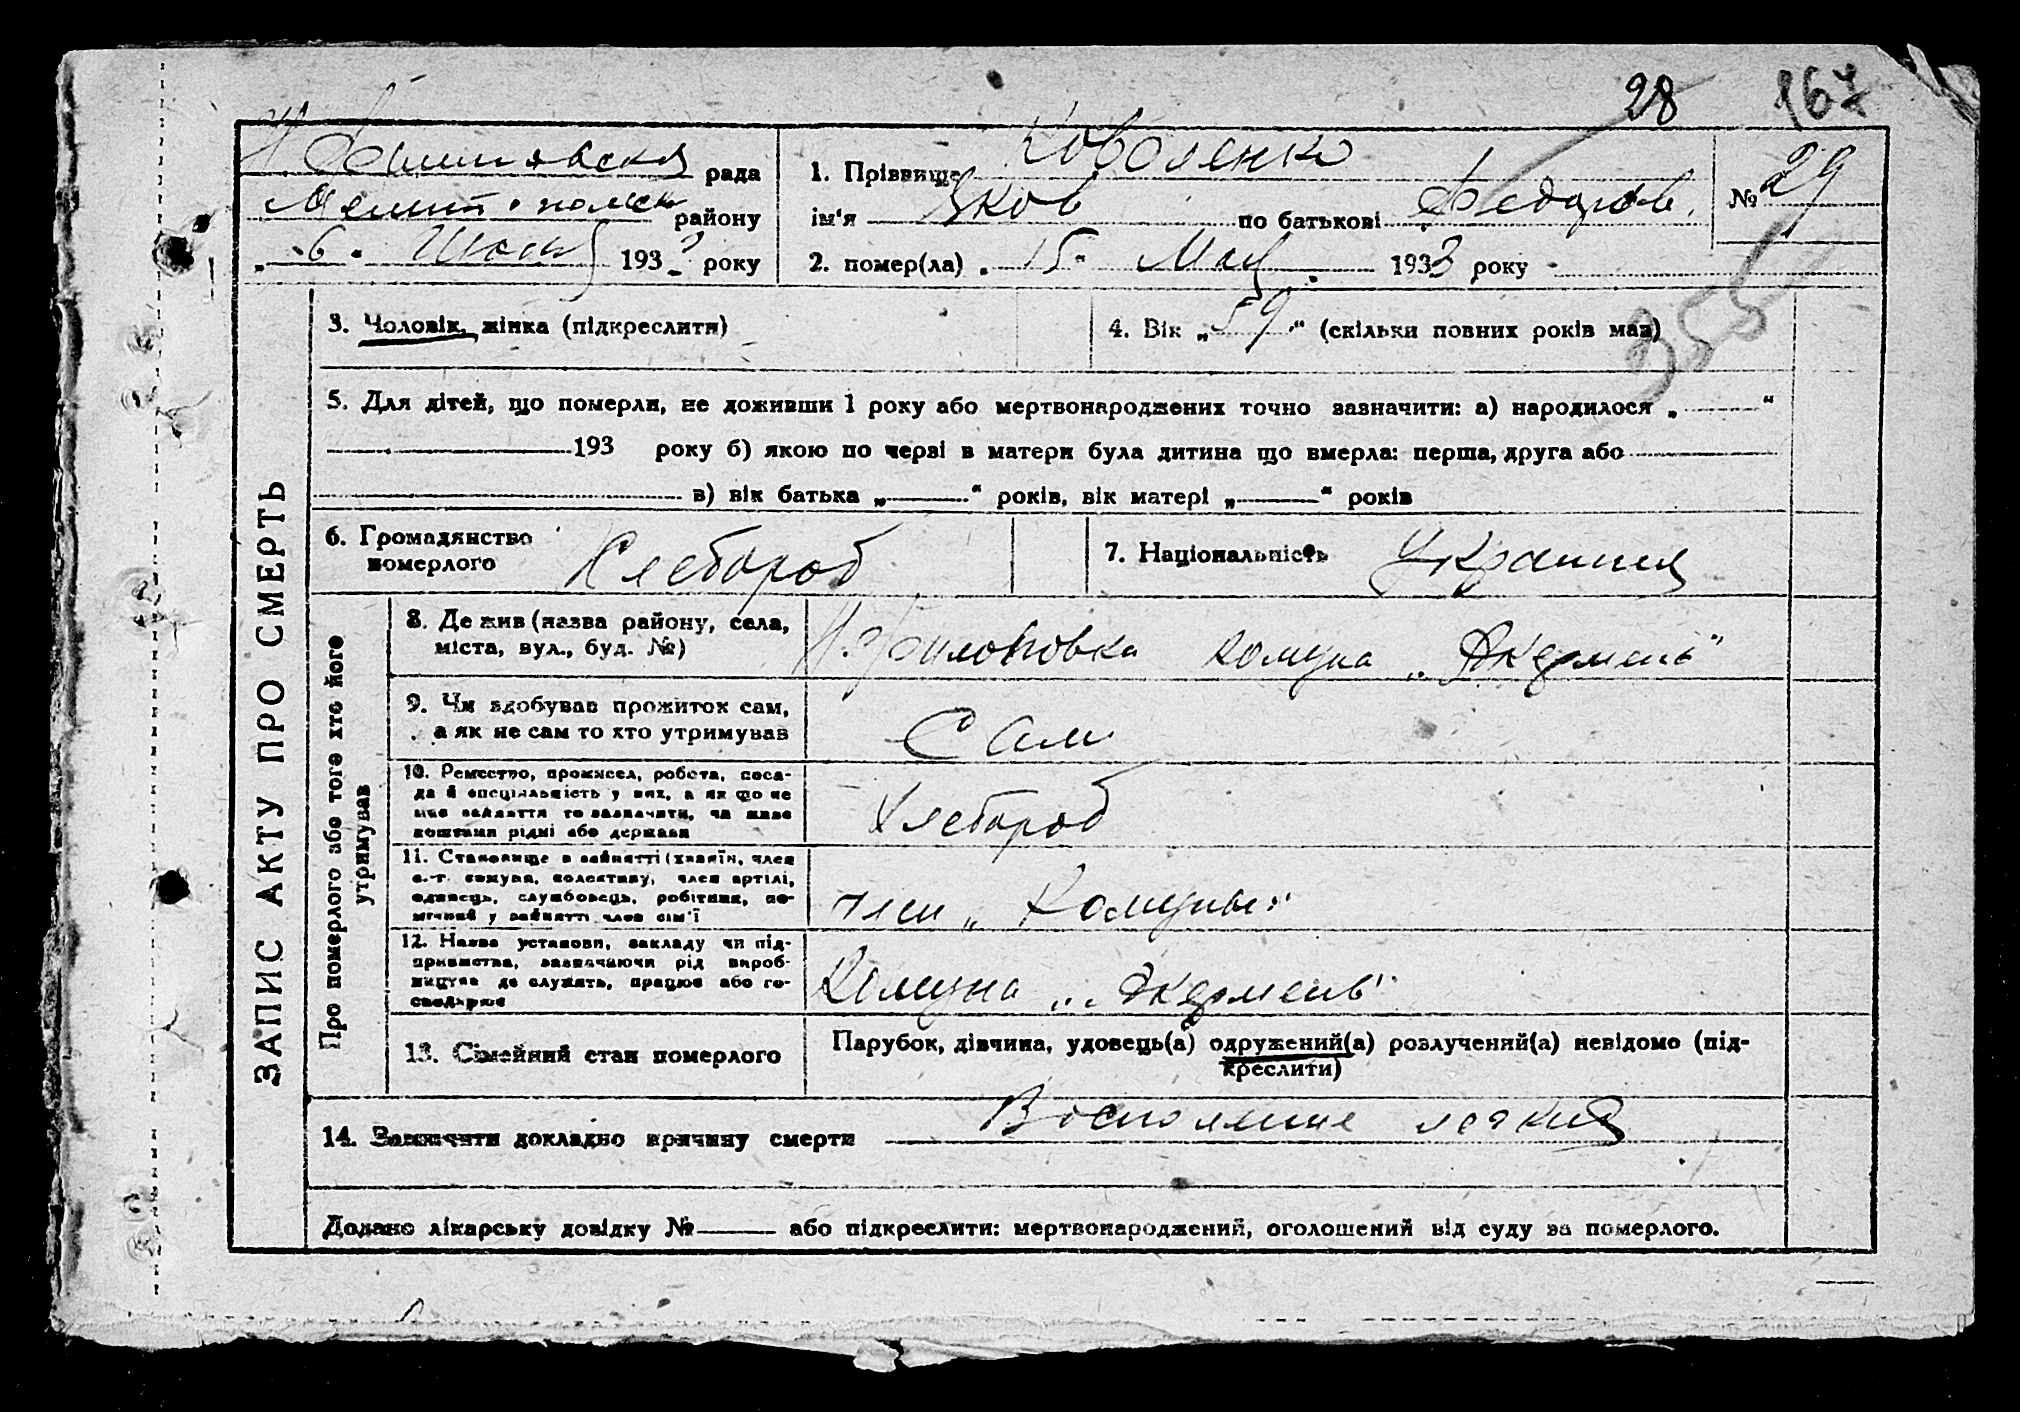 28 167
рада
1. Прізвище Коваленко
№ 29
Мелитопольск району
ім'я Яков по батькові Федоров.
„6" Июня 1933 року
2. помер(ла) „15" Мая 1933 року
355
ЗАПИС АКТУ ПРО СМЕРТЬ
3. Чоловік, жінка (підкреслити)
4. Вік „59" (скільки повних років мав)
5. Для дітей, що померли, не доживши 1 року або мертвонароджених точно зазначити: а) народилося „ "
193 року б) якою по черзі в матери була дитина що вмерла: перша, друга або
в) вік батька „ " років, вік матері „ " років
6. Громадянство
померлого
Хлебороб
7. Національність
Про померлого або того хто його
утримував
8. Де жив (назва району, села,
міста, вул., буд. №)
комуна „Акермень"
9. Чи здобував прожиток сам,
а як не сам то хто утримував
Сам
10. Ремество, промисел, робота, поса-
да й спеціяльність у них, а як що не
мав заняття то зазначити, чи жив
коштами рідні або держави
Хлебороб
11. Становище в занятті (хазяїн, член
с.-г. комуни, колективу, член артілі,
одинець, службовець, робітник, по-
мічний у занятті член сім'ї
член „Комуны"
12. Назва установи, закладу чи під-
приємства, зазначаючи рід вироб-
ництва де служить, працює або го-
сподарює
Комуна „Акермень"
13. Сімейний стан померлого
Парубок, дівчина, удовець(а) одружений(а) розлучений(а) невідомо (під-
креслити)
14. Зазначити докладно причину смерти Воспаление легких
Додано лікарську довідку № або підкреслити: мертвонароджений, оголошений від суду за померлого.